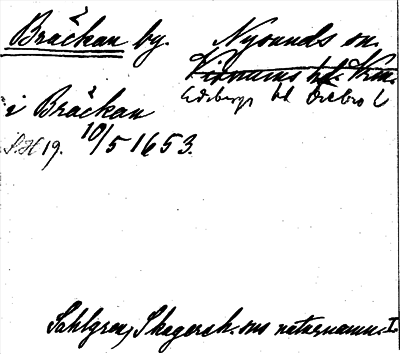 Bräčkan by. Nysunds sn.
Visnums hd. Vrm.
Edsbergs hd Örebro l
i Bräčkan
S.H 19. 10/5 1653.
Sahlgren, Skagersh.-sns naturnamn. I.